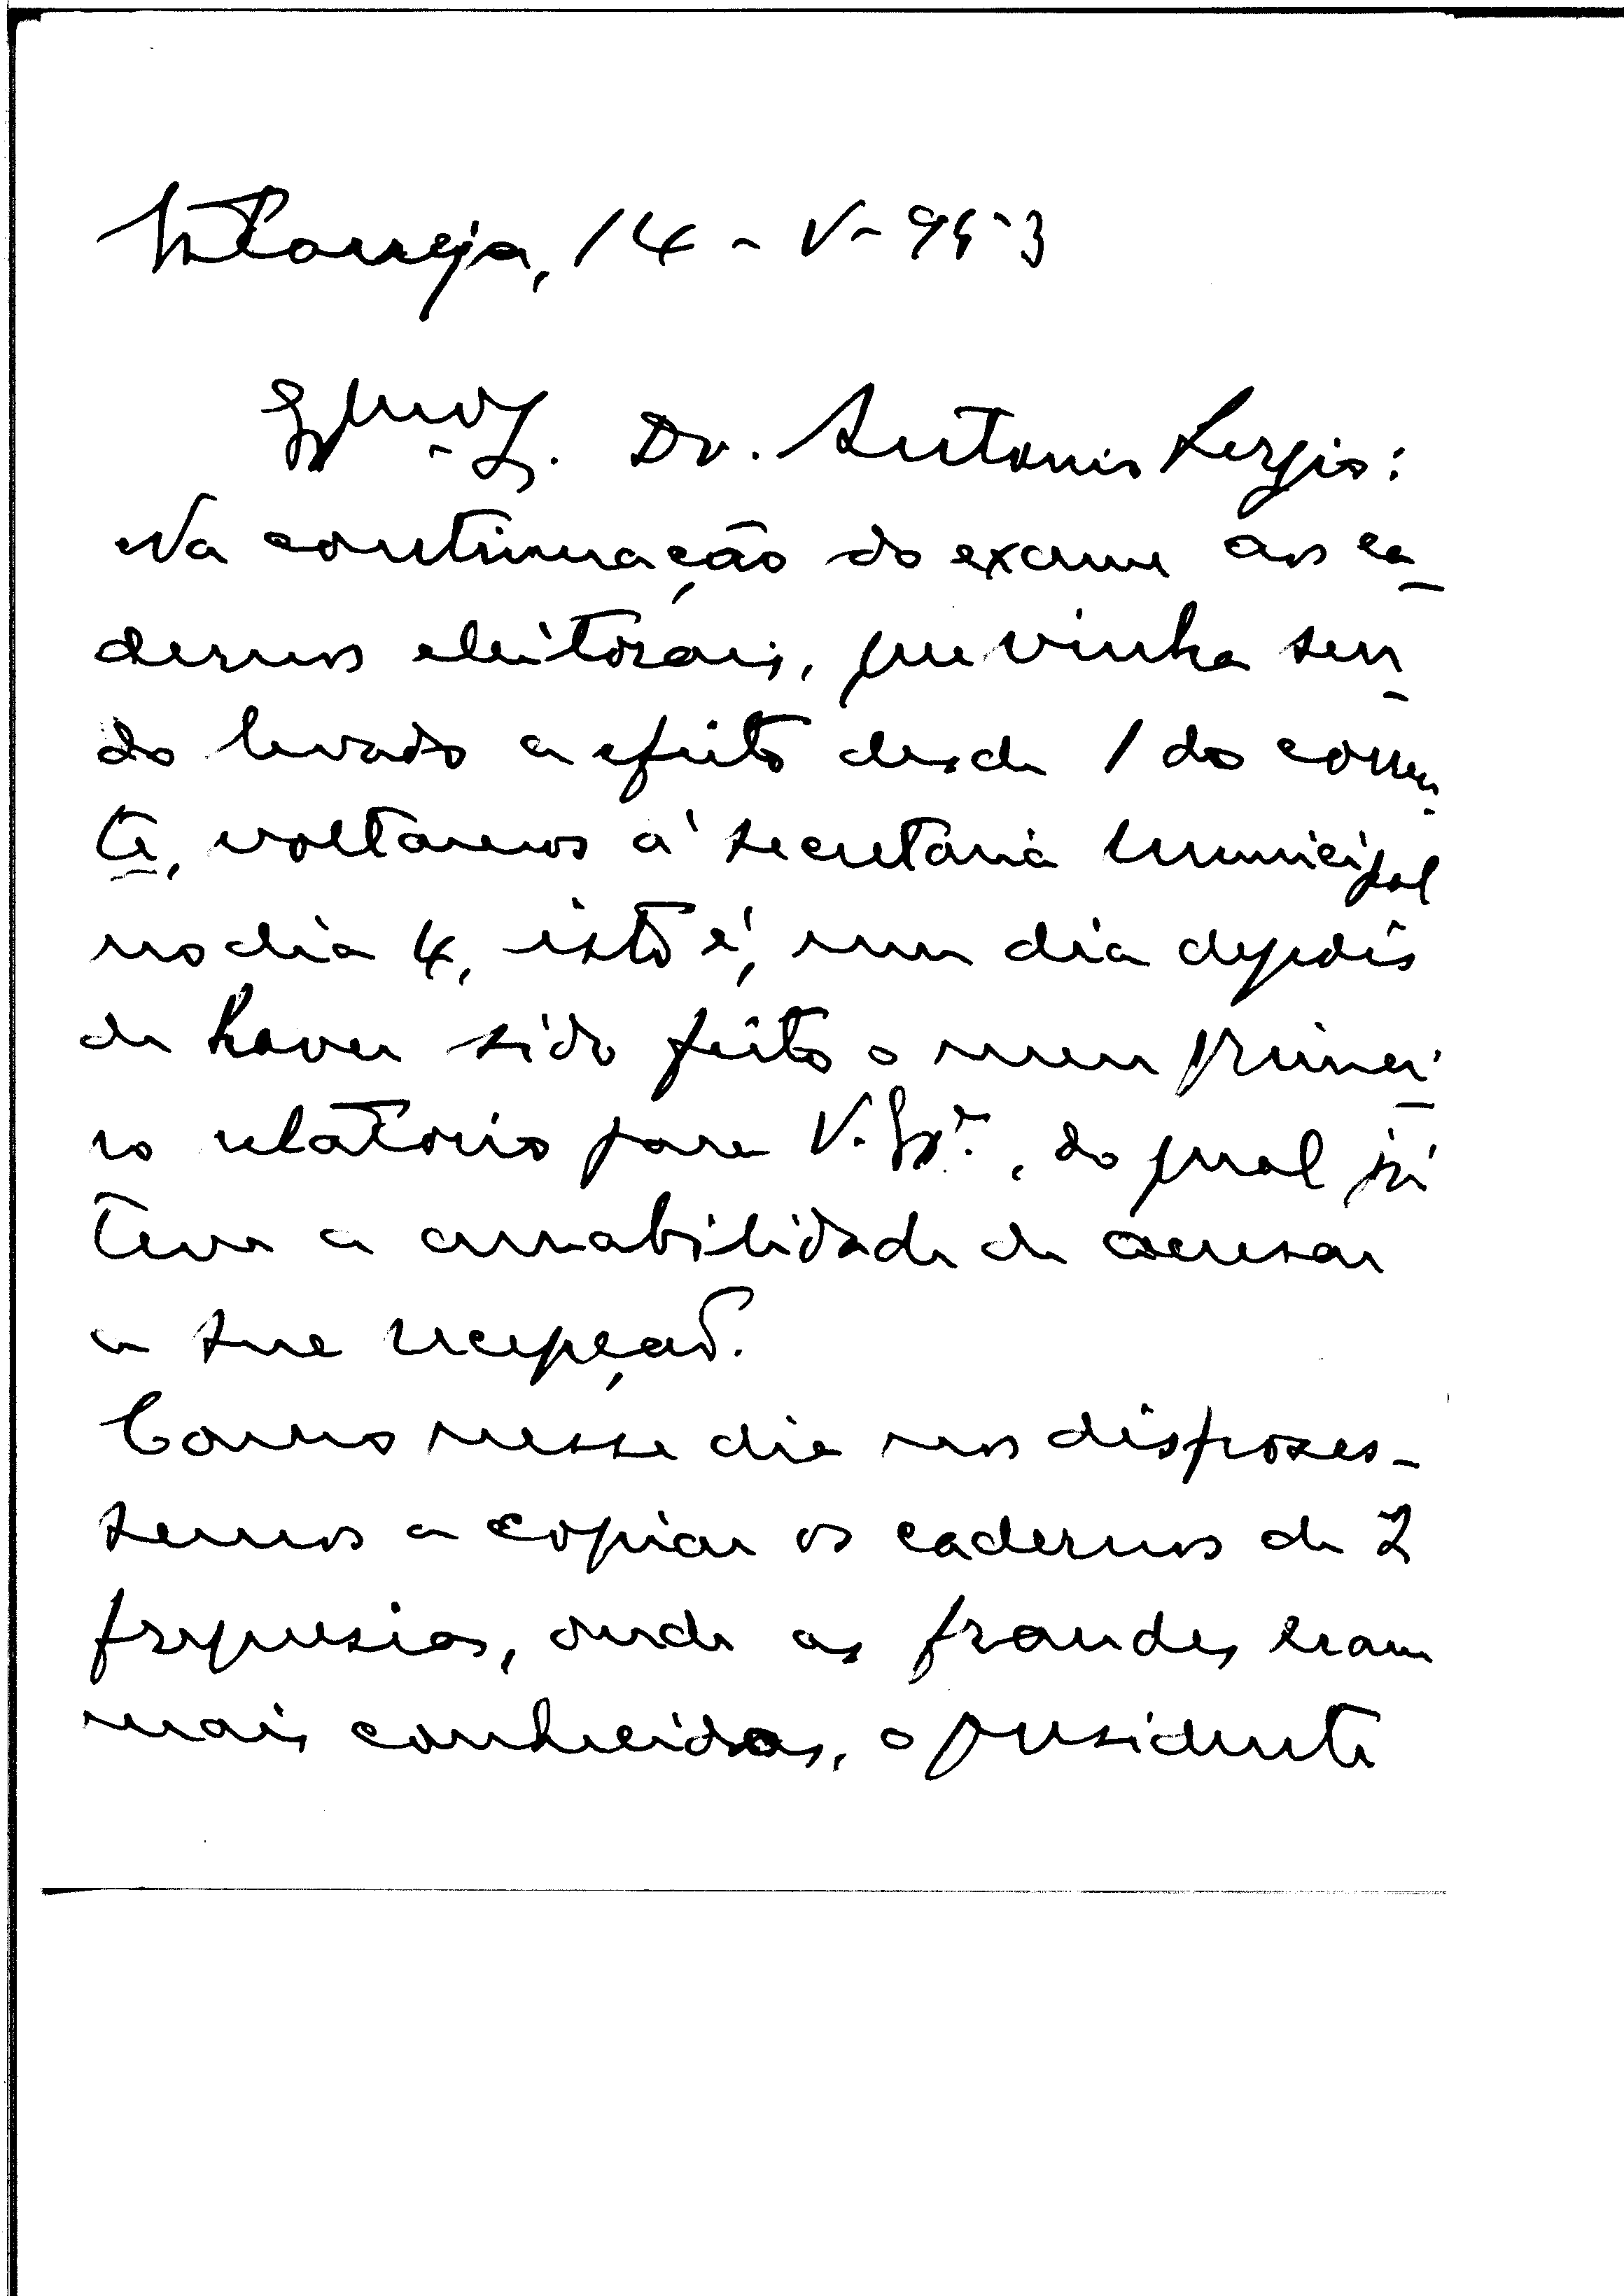 14-V-953
Dr. Antonio Sergio:
Na continuação do exame aos ca-
dernos eleitorais, que vinha sen-
do levado a efeito desde 1 do corren-
te, voltamos á secretaria municipal
no dia 4, isto é, um dia depois
de haver sido feito o meu primei-
ro relatorio para V. Exª., do qual já
teve a amabilidade de acusar
a sua recepção.
Como nesse dia nos disposes-
semos a copiar os cadernos de 2
freguesias, onde as fraudes eram
mais conhecidas, o presidente